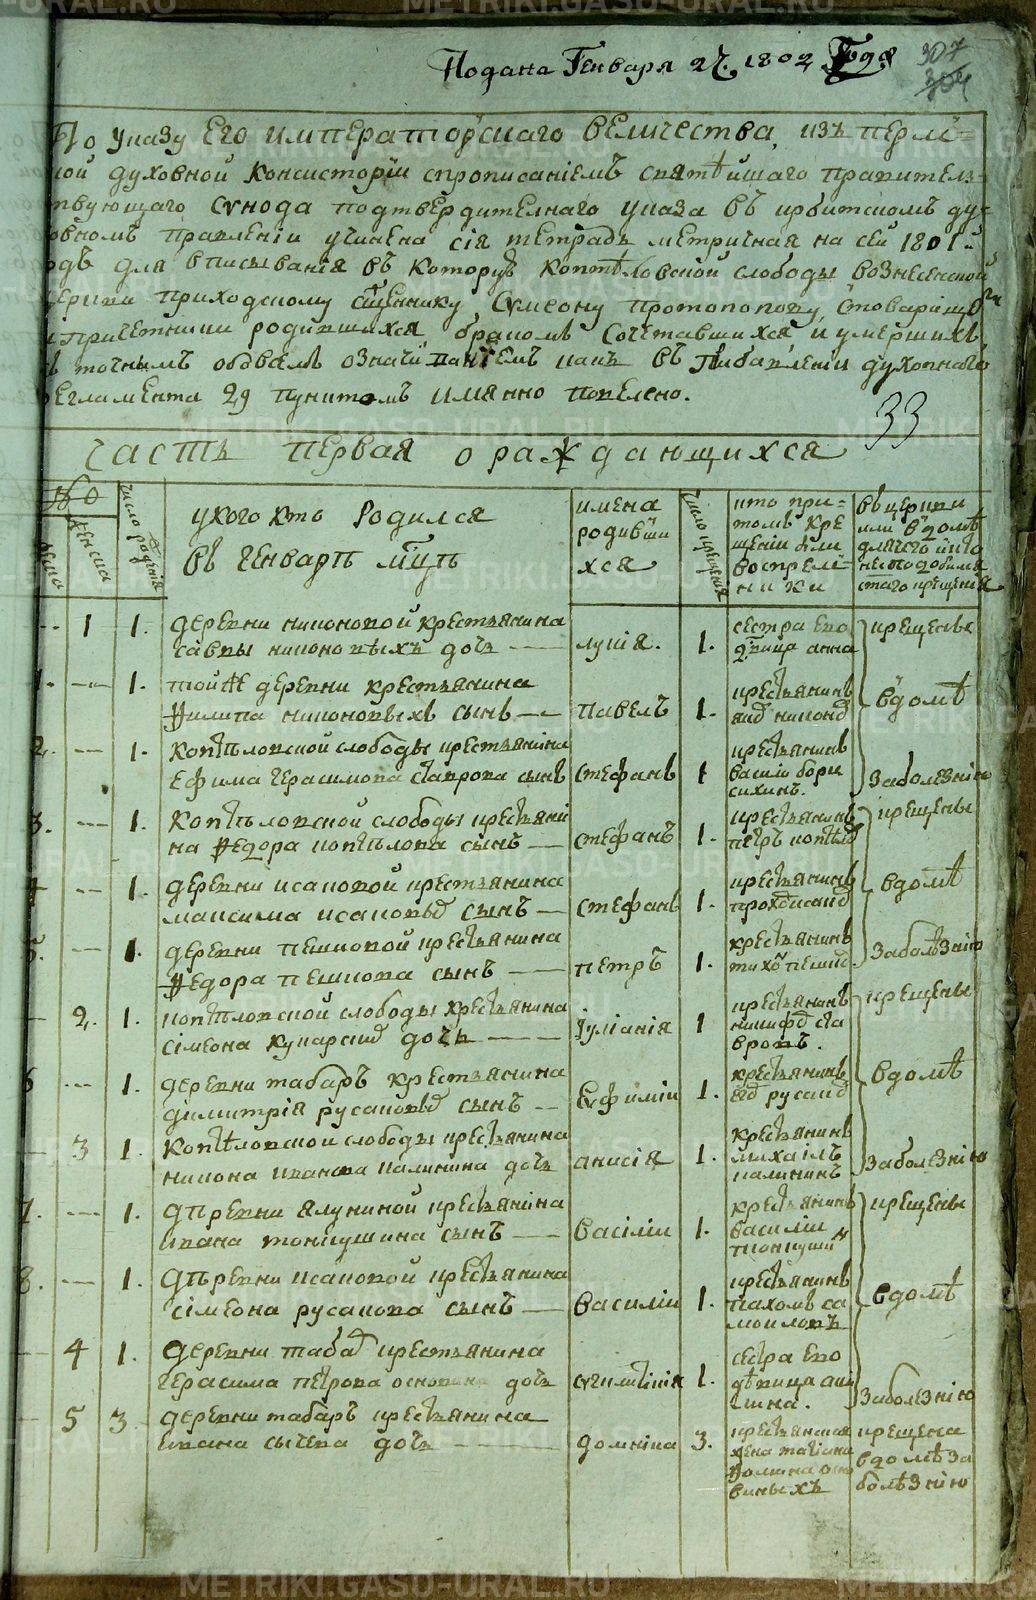 Подана Генваря 27. 1802 Года
307
По указу Его императорскаго величества, изъ перм=
ской духовной консисторіи спрописаніемъ святѣйшаго правителз=
ствующаго сунода подтвердителнаго указа въ ирбитскомъ ду=
овномъ правленіи учинена сія тетрадь метричная на сей 1801й
одъ для вписыванія въ которую коптѣловской слободы вознесенской
церкви приходскому священнику Сумеону протопопову, стоварищи
и причетники родившихся бракомъ сочетавшихся и умершихъ
точнымъ обо всемъ означи ванїемъ какъ въ прибавленіи духовнаго
регламента 29 пунктомъ имянно повелено.
33
часть первая о раждающихся
число рожденія
укого кто родился
въ генварѣ мцѣ
имена
родивши
хся
число крещенія
кто при=
томъ кре
щеніи были
воспреем
ники
въ церкви
или вдомѣ
1 1. деревни никоновой крестьянина
саввы никоновыхъ дочь — лукія. 1. сестра ево
двица анна
крещены
1. -- 1. тойже деревни крестьянина
филипа никоновыхъ сынъ — павелъ 1. крестьянинъ
вдомѣ
2. -- 1. коптѣловской слободы крестьянина
ефима герасимова ставрова сынъ стефанъ 1 крестьянинъ
василій бори
сихинъ.
заболезнію
3. --- 1. коптѣловской слободы крестьяни
на федора коптѣлова сынъ — стефанъ 1. крестьянинъ
петръ коптѣлов
крещены
4 -- 1. деревни исаковой крестьянина
максима исаковых сынъ — стефанъ 1. крестьянинъ
вдомѣ
5. -- 1. деревни пешковой крестьянина
федора пешкова сынъ — петръ 1. крестьянинъ
заболѣзнію
2. 1. коптѣловской слободы крестьянина
сімеона кунарских дочь — іуліанія 1 крестьянинъ
никифор ста
вровъ.
крещены
6 --- 1. деревни табаръ крестьянина
димитрія русаковых сынъ — Евфимій 1. крестьянинъ
вдомѣ
3 1. коптѣловской слободы крестьянина
никона иванова калинина дочь анисія 1. крестьянинъ
михаилъ
калининъ
заболезнію
7. --- 1. дѣревни ялуниной крестьянина
ивана тонкушина сынъ — василій 1. крестьянинъ
василій
тонкушин
крещены
8. -- 1. дѣревни исаковой крестьянина
сімеона русакова сынъ — василій 1. крестьянинъ
пахомъ са
моиловъ
вдомѣ
4 1. деревни табар крестьянина
герасима петрова осковина дочь 1. сестра ево
дѣвица
заболезнію
5 3. деревни табаръ крестьянина
ивана сычева дочь — домника 3. крестьянская
жена татіана
крещена
вдомѣ за
болѣзнію
METRIKI.GASO-URAL.RU